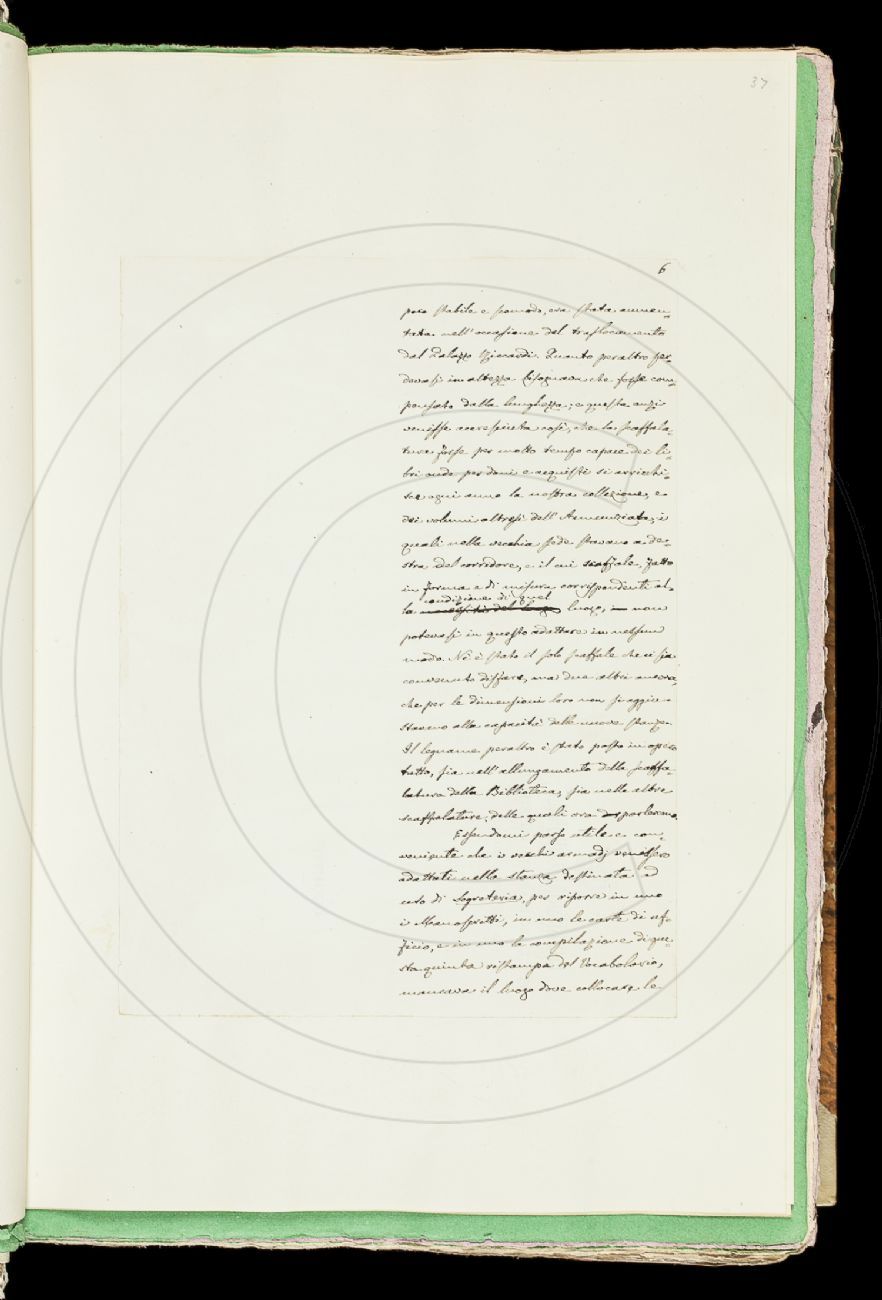 37
6
poco stabile e comodo, era stata aumen=
tata nell'occasione del traslocamento
dal Palazzo Riccardi. Quanto peraltro per=
devasi in altezza bisognava che fosse com=
pensato dalla lunghezza; e questa anzi
venisse accresciuta così, che la scaffala=
tura fosse per molto tempo capace dei li=
bri onde per doni e acquisti si arricchi=
sce ogni anno la nostra collezione, e
dei volumi altresì dell'Annunziata, i
quali nella vecchia sede stavano a de=
stra del corridore, e il cui scaffale, fatto
in forma e di misura corrispondenti al=
condizione di quel
la necessità del luogo luogo, in non
potevasi in questo adattare in nessun
modo. Nè è stato il solo scaffale che ci sia
convenuto disfare, ma due altri ancora,
che per le dimensioni loro non s'aggiu=
stavano alla capacità delle nuove stanze.
Il legname peraltro è stato posto in opera
tutto, sia nell'allungamento della scaffa=
latura della Biblioteca, sia nelle altre
scaffalature, delle quali ora parleremo.
Essendomi parso utile e con=
veniente che i vecchi armadj venissero
adattati nella stanza destinata ad
uso di Segreteria, per riporre in uno
i Manoscritti, in uno le carte di uf=
ficio, e in uno la compilazione di que=
sta quinta ristampa del Vocabolario,
mancava il luogo dove collocare le